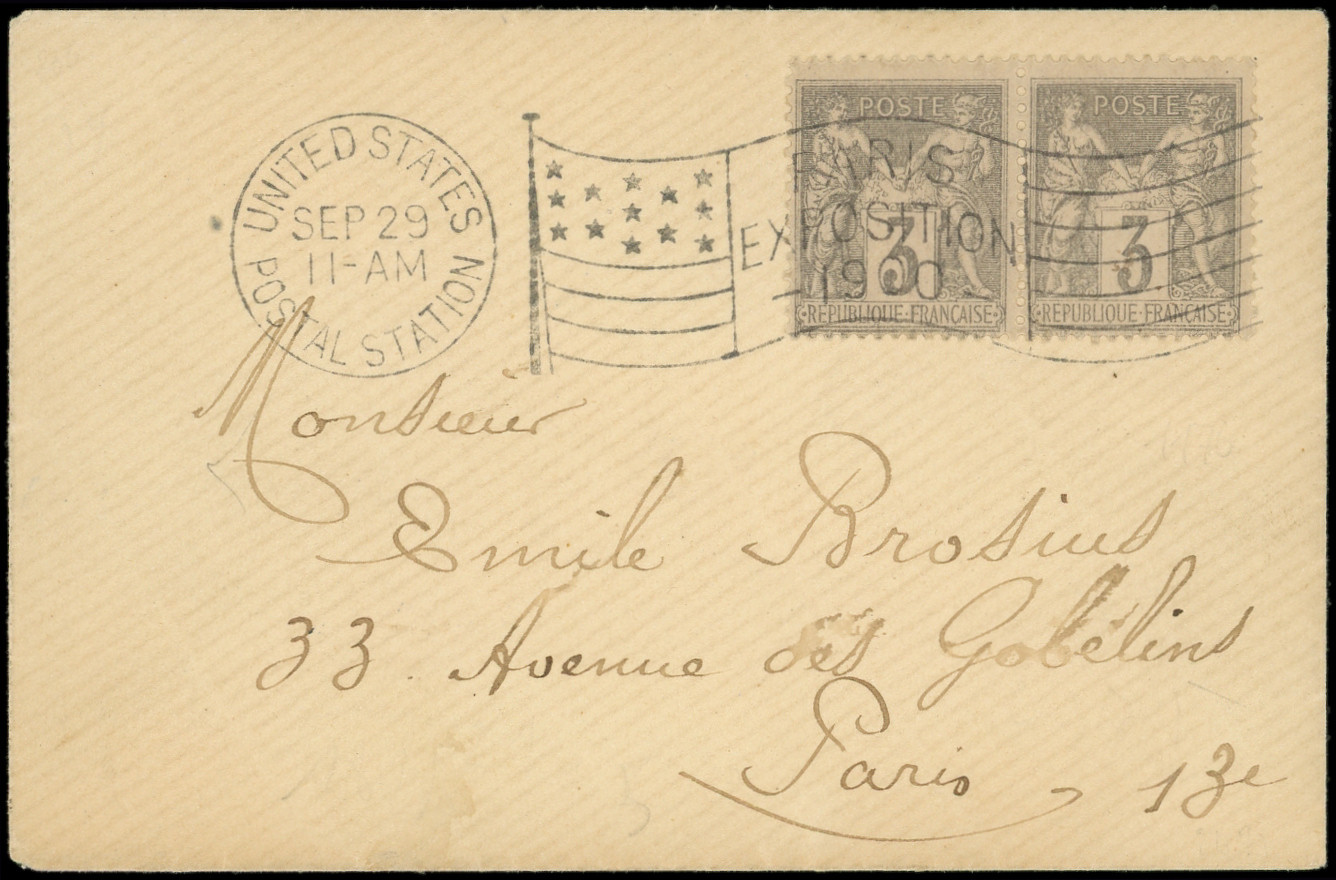 UNITED STATES
SEP 29
11-AM
POSTAL STATION
PARIS
EXPOSITION
1900
POSTE
3
RÉPUBLIQUE FRANÇAISE
POSTE
3
RÉPUBLIQUE FRANÇAISE
Monsieur
Emile Brosius
33 Avenue des Gobelins
Paris 13e